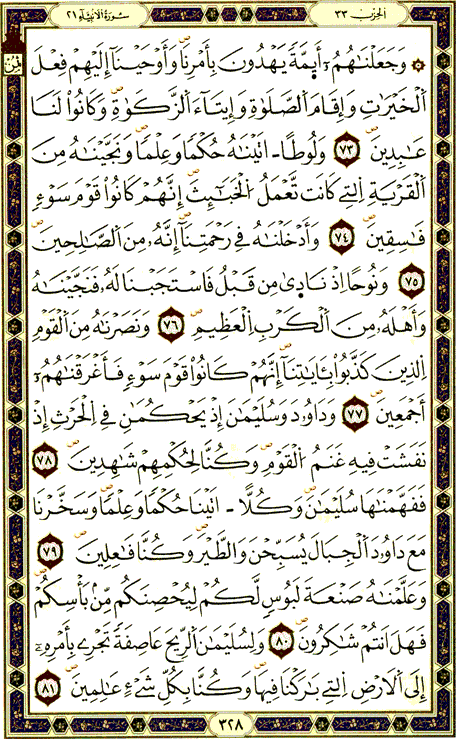 الحزب ٣٣
سورة الانبياء ٢١
ثمن
۞ وَجَعَلْنَٰهُمُۥٓ أَئِمَّةً يَهْدُونَ بِأَمْرِنَا وَأَوْحَيْنَآ إِلَيْهِمْ فِعْلَ
اَلْخَيْرَٰتِ وَإِقَامَ اَلصَّلَوٰةِ وَإِيتَآءَ اَلزَّكَوٰةِ وَكَانُواْ لَنَا
عَٰبِدِينَ ٧٣ وَلُوطًا ـ اتَيْنَٰهُ حُكْمًا وَعِلْمًا وَنَجَّيْنَٰهُ مِنَ
اَلْقَرْيَةِ اِلتِے كَانَت تَّعْمَلُ اُلْخَبَٰٓئِثَ إِنَّهُمْ كَانُواْ قَوْمَ سَوْءٍ
فَٰسِقِينَ ٧٤ وَأَدْخَلْنَٰهُ فِے رَحْمَتِنَآ إِنَّهُۥ مِنَ اَلصَّٰلِحِينَ
٧٥ وَنُوحًا اِذْ نَادَىٰ مِن قَبْلُ فَاسْتَجَبْنَا لَهُۥ فَنَجَّيْنَٰهُ
وَأَهْلَهُۥ مِنَ اَلْكَرْبِ اِلْعَظِيمِ ٧٦ وَنَصَرْنَٰهُ مِنَ اَلْقَوْمِ
اِلذِينَ كَذَّبُواْ بِـَٔايَٰتِنَآ إِنَّهُمْ كَانُواْ قَوْمَ سَوْءٍ فَأَغْرَقْنَٰهُمُۥٓ
أَجْمَعِينَ ٧٧ وَدَاوُۥدَ وَسُلَيْمَٰنَ إِذْ يَحْكُمَٰنِ فِے اِلْحَرْثِ إِذْ
نَفَشَتْ فِيهِ غَنَمُ اُلْقَوْمِ وَكُنَّا لِحُكْمِهِمْ شَٰهِدِينَ ٧٨
فَفَهَّمْنَٰهَا سُلَيْمَٰنَ وَكُلًّا ـ اتَيْنَا حُكْمًا وَعِلْمًا وَسَخَّرْنَا
مَعَ دَاوُۥدَ اَلْجِبَالَ يُسَبِّحْنَ وَالطَّيْرَ وَكُنَّا فَٰعِلِينَ ٧٩
وَعَلَّمْنَٰهُ صَنْعَةَ لَبُوسٍ لَّكُمْ لِيُحْصِنَكُم مِّنۢ بَأْسِكُمْ
فَهَلَ اَنتُمْ شَٰكِرُونَ ٨٠ وَلِسُلَيْمَٰنَ اَلرِّيحَ عَاصِفَةً تَجْرِے بِأَمْرِهِۦٓ
إِلَى اَلَارْضِ اِلتِے بَٰرَكْنَا فِيهَا وَكُنَّا بِكُلِّ شَےْءٍ عَٰلِمِينَ ٨١
٣٢٨